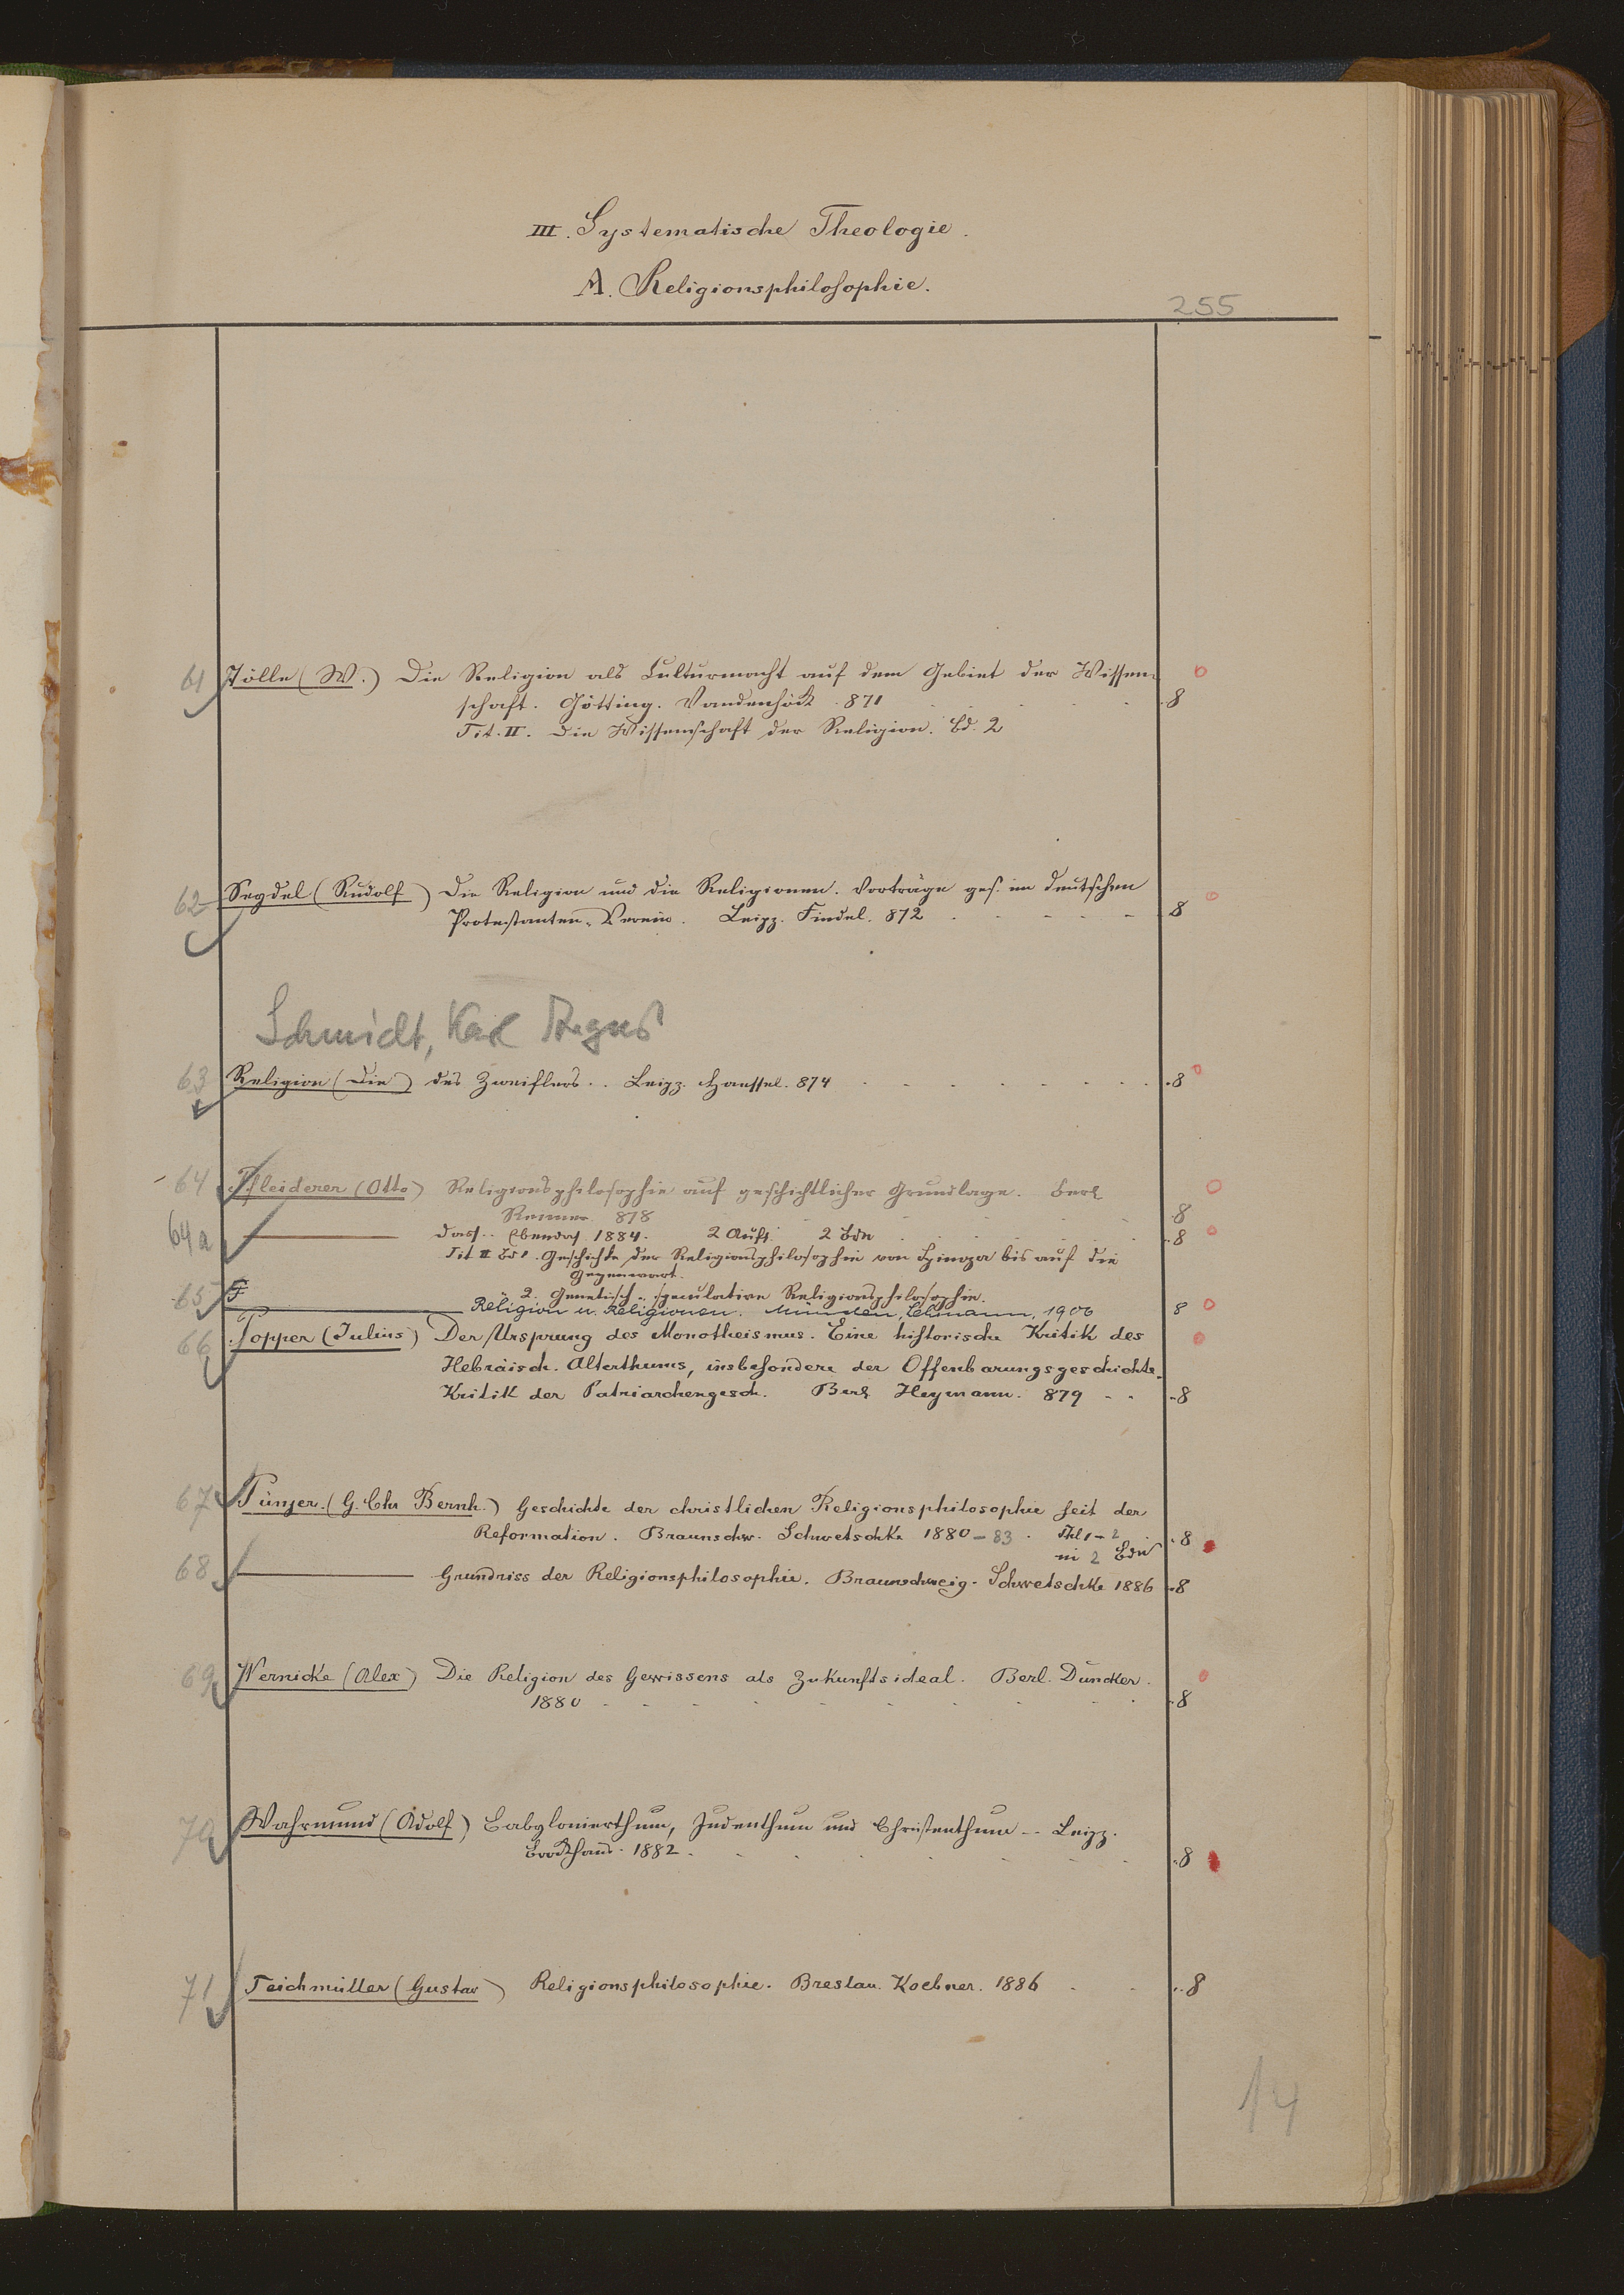 III. Systematische Theologie.
A. Religionsphilosophie.
255
61 Tölle (W.) Die Religion als Culturmacht auf dem Gebiet der Wissen-
schaft. Götting. Vandenhöck. 871 . . . 8
Tit. II. Die Wissenschaft der Religion. Bd. 2
62 Seydel (Rudolf) Die Religion und die Religionen. Vorträge geh. im deutschen
Protestanten-Verein. Leipz. Findel. 872 . - - - - 8
Schmidt, Karl
63 Religion (Die) des Zweiflers .. Leipz. Haessel. 874 . . . . . 8
64 Pfleiderer (Otto) Religionsphilosophie auf geschichtlicher Grundlage. Berl.
Reimer 878 . . . 8
64a — Dass. . Ebendas. 1884. 2 Aufl. 2 Bde . . . 8
Tit II Bd 1. Geschichte der Religionsphilosophie von Spinoza bis auf die
Gegenwart.
2. Genetisch-speculative Religionsphilosophie.
65 — Religion u. Religionen. München, Lehmann, 1906 8
66 Popper (Julius) Der Ursprung des Monotheismus. Eine historische Kritik des
Hebräisch. Alterthums, insbesondere der Offenbarungsgeschichte.
Kritik der Patriarchengesch. Berl Heymann. 879 - - 8
67 Pünjer. (G. Chr Bernh.) Geschichte der christlichen Religionsphilosophie seit der
Reformation. Braunschw. Schwetschke 1880-83. Thl 1-2 . 8
in 2 Bdn
68 — Grundriss der Religionsphilosophie. Braunschweig. Schwetschke 1886 8
69 Wernicke (Alex) Die Religion des Gewissens als Zukunftsideal. Berl. Duncker.
1880 - - - - 8
70 Wahrmund (Adolf) Babylonierthum, Judenthum und Christenthum -- Leipz.
Brockhaus. 1882 . . . 8
71 Teichmüller (Gustav) Religionsphilosophie. Breslau. Koebner. 1886 . . . 8
14